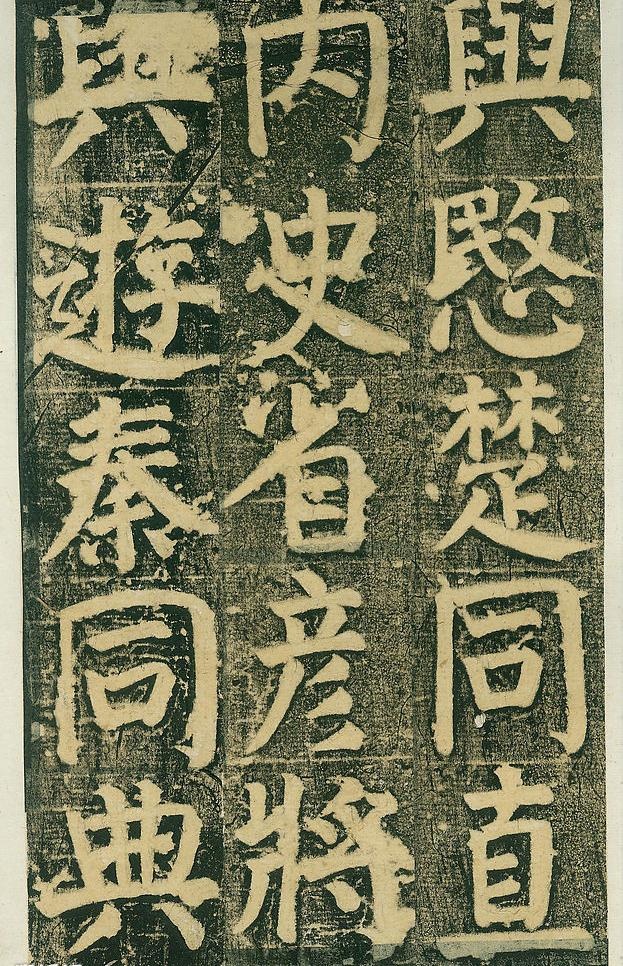 與愍楚同直
内史省彦將
與遊秦同典